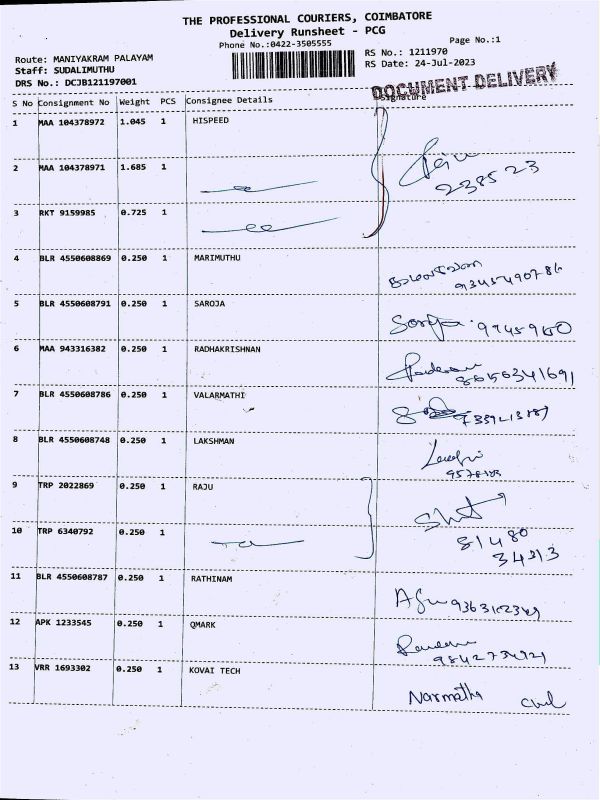 THE PROFESSIONAL COURIERS, COIMBATORE
Delivery Runsheet - PCG
Phone No.:0422-3505555
Page No.:1
Route: MANIYAKRAM PALAYAM
RS No.: 1211970
Staff: SUDALIMUTHU
RS Date: 24-Jul-2023
DRS No.: DCJB121197001
DOCUMENT DELIVERY
S No Consignment No Weight PCS Consignee Details Signature
1 MAA 104378972 1.045 1 HISPEED
2 MAA 104378971 1.685 1
238523
3 RKT 9159985 0.725 1
4 BLR 4550608869 0.250 1 MARIMUTHU
9345490786
5 BLR 4550608791 0.250 1 SAROJA
Saroja
6 MAA 943316382 0.250 1 RADHAKRISHNAN
7 BLR 4550608786 0.250 1 VALARMATHI
8 BLR 4550608748 0.250 1 LAKSHMAN
9 TRP 2022869 0.250 1 RAJU
10 TRP 6340792 0.250 1
81480
34313
11 BLR 4550608787 0.250 1 RATHINAM
12 APK 1233545 0.250 1 QMARK
9842734921
13 VRR 1693302 0.250 1 KOVAI TECH
Narmatha